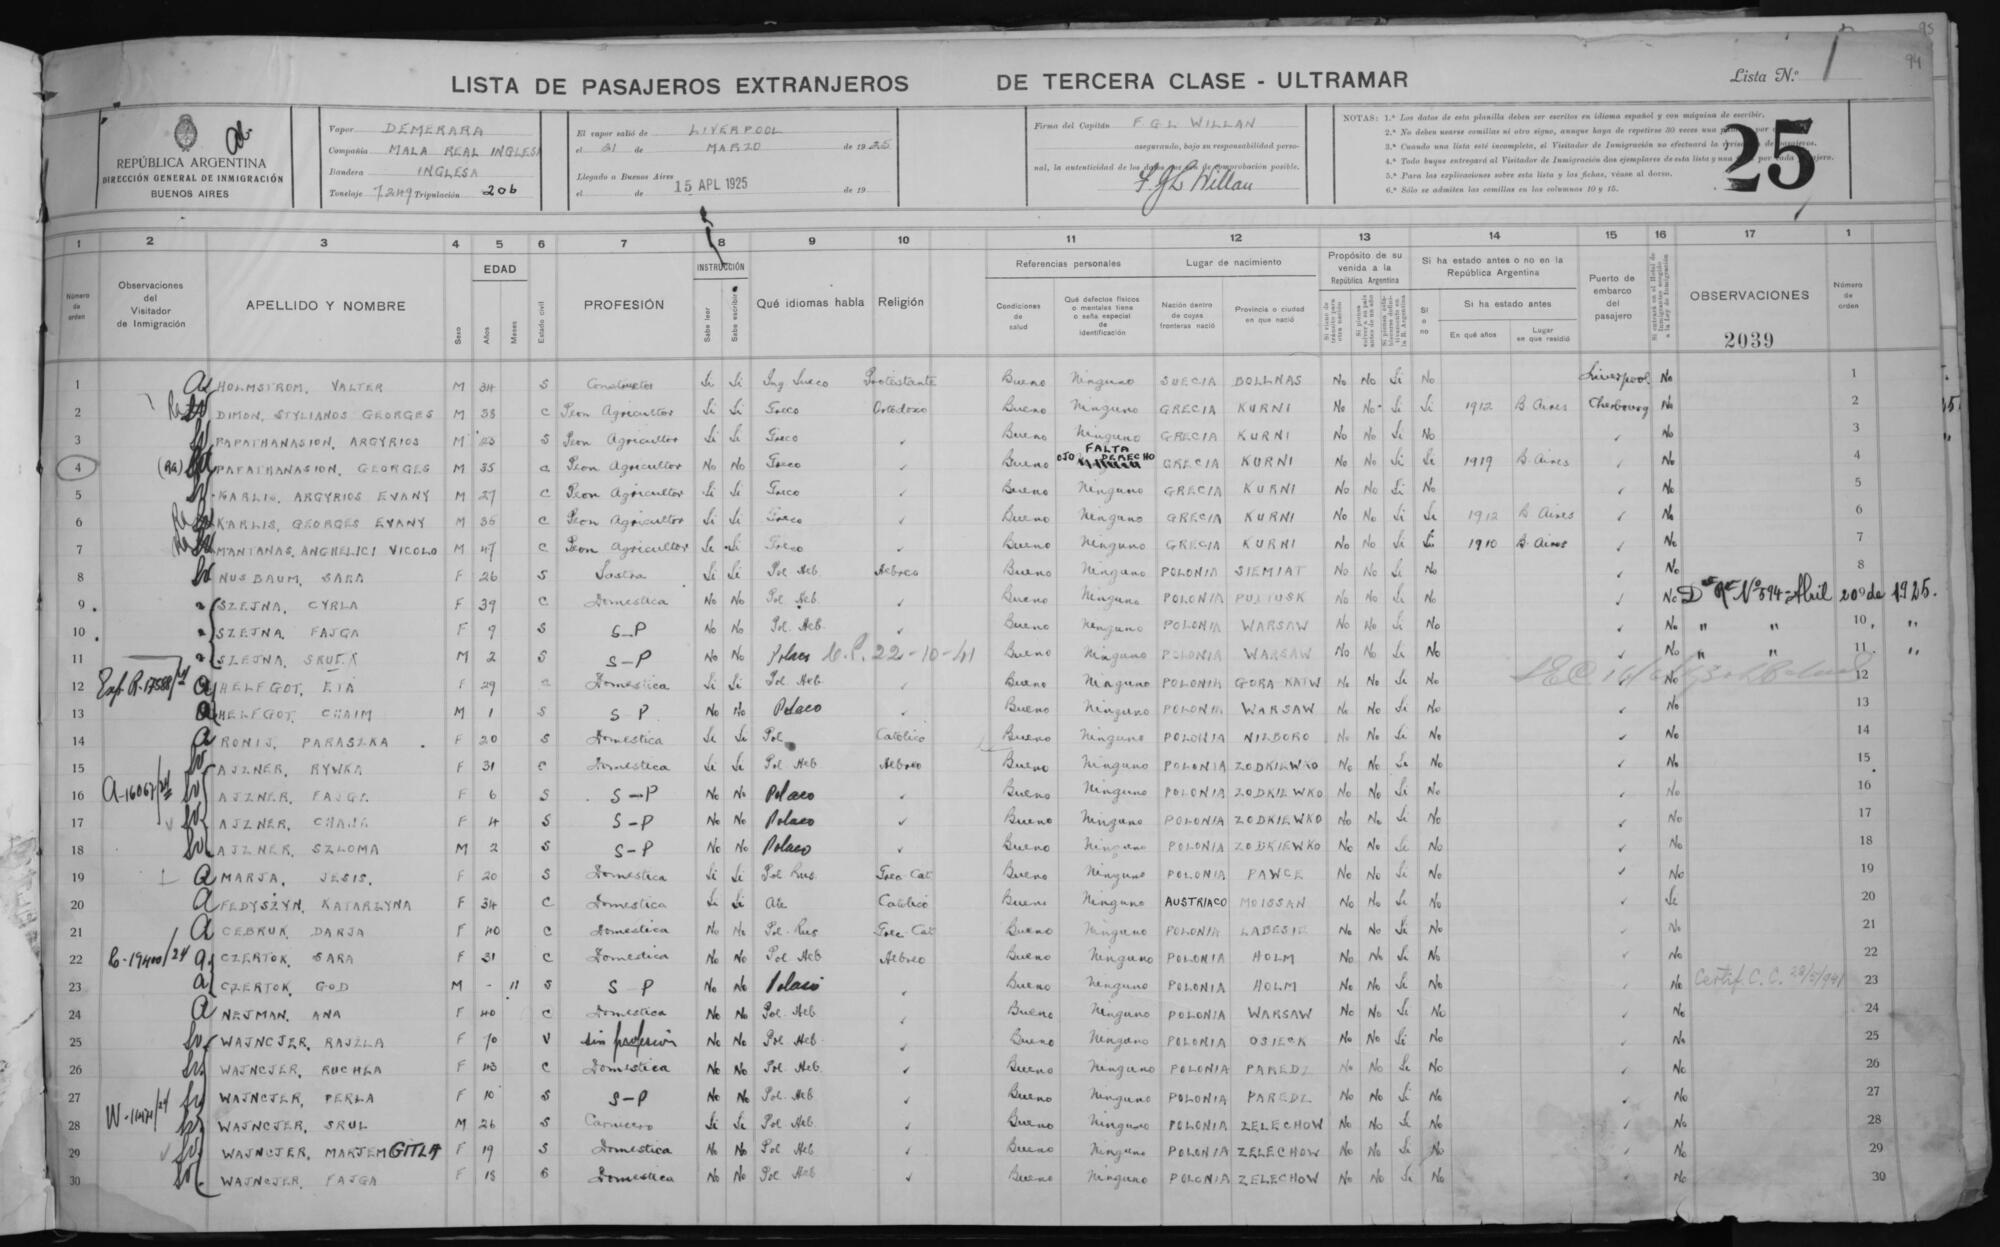 95
94
LISTA DE PASAJEROS EXTRANJEROS DE TERCERA CLASE - ULTRAMAR Lista N.º 1
REPÚBLICA ARGENTINA
DIRECCIÓN GENERAL DE INMIGRACIÓN
BUENOS AIRES
Vapor DEMERARA
Compañía MALA REAL INGLESA
Bandera INGLESA
Tonelaje 7.249 Tripulación 206
El vapor salió de LIVERPOOL
el 31 de MARZO de 1925
Llegado a Buenos Aires
el de 15 APL 1925 de 19
Firma del Capitán F G L WILLAN
asegurando, bajo su responsabilidad perso-
nal, la autenticidad de los datos que son de comprobación posible.
F G L Willan
NOTAS: 1.ª Los datos de esta planilla deben ser escritos en idioma español y con máquina de escribir.
2.ª No deben usarse comillas ni otro signo, aunque haya de repetirse 30 veces una
3.ª Cuando una lista esté incompleta, el Visitador de Inmigración no efectuará la
4.ª Todo buque entregará al Visitador de Inmigración dos ejemplares de esta lista y una
5.ª Para las explicaciones sobre esta lista y las fichas, véase al dorso.
6.ª Sólo se admiten las comillas en las columnas 10 y 15.
25
1 2 3 4 5 6 7 8 9 10 11 12 13 14 15 16 17 1
Número de orden
Observaciones del Visitador de Inmigración
APELLIDO Y NOMBRE
Sexo
EDAD
Años Meses
Estado civil
PROFESIÓN
INSTRUCCIÓN
Sabe leer Sabe escribir
Qué idiomas habla
Religión
Referencias personales
Condiciones de salud
Qué defectos físicos o mentales tiene o seña especial de identificación
Lugar de nacimiento
Nación dentro de cuyas fronteras nació
Provincia o ciudad en que nació
Propósito de su venida a la República Argentina
Si ha estado antes o no en la República Argentina
Si o no
Si ha estado antes
En qué años
Lugar en que residió
Puerto de embarco del pasajero
OBSERVACIONES
2039
Número de orden
1 HOLMSTROM, VALTER M 34 S Constructor Si Si Ing Sueco Protestante Bueno Ninguno SUECIA BOLLNAS No No Si No Liverpool No 1
2 DIMON, STYLIANOS GEORGES M 33 C Peon Agricultor Si Si Greco Ortodoxo Bueno Ninguno GRECIA KURNI No No Si Si 1912 B Aires Cherbourg No 2
3 PAPATHANASION, ARGYRIOS M 43 S Peon Agricultor Si Si Greco Bueno Ninguno GRECIA KURNI No No Si No No 3
4 (Ra) PAPATHANASION, GEORGES M 35 C Peon Agricultor No No Greco Bueno FALTA OJO DERECHO GRECIA KURNI No No Si Si 1919 B Aires No 4
5 KARLIS, ARGYRIOS EVANY M 27 C Peon Agricultor Si Si Greco Bueno Ninguno GRECIA KURNI No No Si No No 5
6 Ra KARLIS, GEORGES EVANY M 36 C Peon Agricultor Si Si Greco Bueno Ninguno GRECIA KURNI No No Si Si 1912 B Aires No 6
7 Ra MANTANAS, ANGHELICI VICOLO M 47 C Peon Agricultor Si Si Greco Bueno Ninguno GRECIA KURNI No No Si Si 1910 B. Aires No 7
8 NUSBAUM, SARA F 26 S Sastra Si Si Pol Heb. Hebreo Bueno Ninguno POLONIA SIEMIAT No No Si No No 8
9 SZEJNA, CYRLA F 39 C Domestica No No Pol Heb. Bueno Ninguno POLONIA PULTUSK No No Si No No Nº 594 - Abril 20 de 1925.
10 SZEJNA, FAJGA F 9 S S-P No No Pol. Heb. Bueno Ninguno POLONIA WARSAW No No Si No No " " 10 "
11 SZEJNA, SRULK M 2 S S-P No No Polaco C.P. 22-10-41 Bueno Ninguno POLONIA WARSAW No No Si No No " " 11 "
12 HELFGOT, ETA F 29 C Domestica Si Si Pol. Heb Bueno Ninguno POLONIA GORA KALW No No Si No No 12
13 HELFGOT, CHAIM M 1 S S P No No Polaco Bueno Ninguno POLONIA WARSAW No No Si No No 13
14 A RONIJ, PARASZKA F 20 S Domestica Si Si Pol Catolico Bueno Ninguno POLONIA NILBORO No No Si No No 14
15 AJZNER, RYWKA F 31 C Domestica Si Si Pol Heb Hebreo Bueno Ninguno POLONIA ZODKIEWKO No No Si No No 15
16 A-16067/24 AJZNER, FAJGA F 6 S S-P No No Polaco Bueno Ninguno POLONIA ZODKIEWKO No No Si No No 16
17 AJZNER, CHANA F 4 S S-P No No Polaco Bueno Ninguno POLONIA ZODKIEWKO No No Si No No 17
18 AJZNER, SZLOMA M 2 S S-P No No Polaco Bueno Ninguno POLONIA ZODKIEWKO No No Si No No 18
19 A MARJA, JESIS. F 20 S Domestica Si Si Pol Rus Grec-Cat Bueno Ninguno POLONIA PAWCE No No Si No No 19
20 A FEDYSZYN, KATARZYNA F 34 C Domestica Si Si Ale Catolico Bueno Ninguno AUSTRIACO MOISSAN No No Si No Si 20
21 A CEBRUK, DARJA F 40 C Domestica No No Pol. Rus Grec-Cat Bueno Ninguno POLONIA LABESIE No No Si No No 21
22 C-19400/24 A CZERTOK, SARA F 31 C Domestica No No Pol Heb Hebreo Bueno Ninguno POLONIA HOLM No No Si No No 22
23 A CZERTOK, GOD M - 11 S S P No No Polaco Bueno Ninguno POLONIA HOLM No No Si No No Certif. C. C. 23
24 A NEJMAN, ANA F 40 C Domestica No No Pol. Heb Bueno Ninguno POLONIA WARSAW No No Si No No 24
25 WAJNCJER, RAJZLA F 70 V sin profesion No No Pol Heb. Bueno Ninguno POLONIA OSIECK No No Si No No 25
26 WAJNCJER, RUCHLA F 43 C Domestica No No Pol. Heb. Bueno Ninguno POLONIA PAREDZ No No Si No No 26
27 WAJNCJER, PERLA F 10 S S-P No No Pol. Heb Bueno Ninguno POLONIA PAREDZ No No Si No No 27
28 WAJNCJER, SRUL M 26 S Carnicero Si Si Pol. Heb. Bueno Ninguno POLONIA ZELECHOW No No Si No No 28
29 WAJNCJER, MARJEM GITLA F 19 S Domestica No No Pol Heb Bueno Ninguno POLONIA ZELECHOW No No Si No No 29
30 WAJNCJER, FAJGA F 18 Domestica No No Pol Heb Bueno Ninguno POLONIA ZELECHOW No No Si No No 30